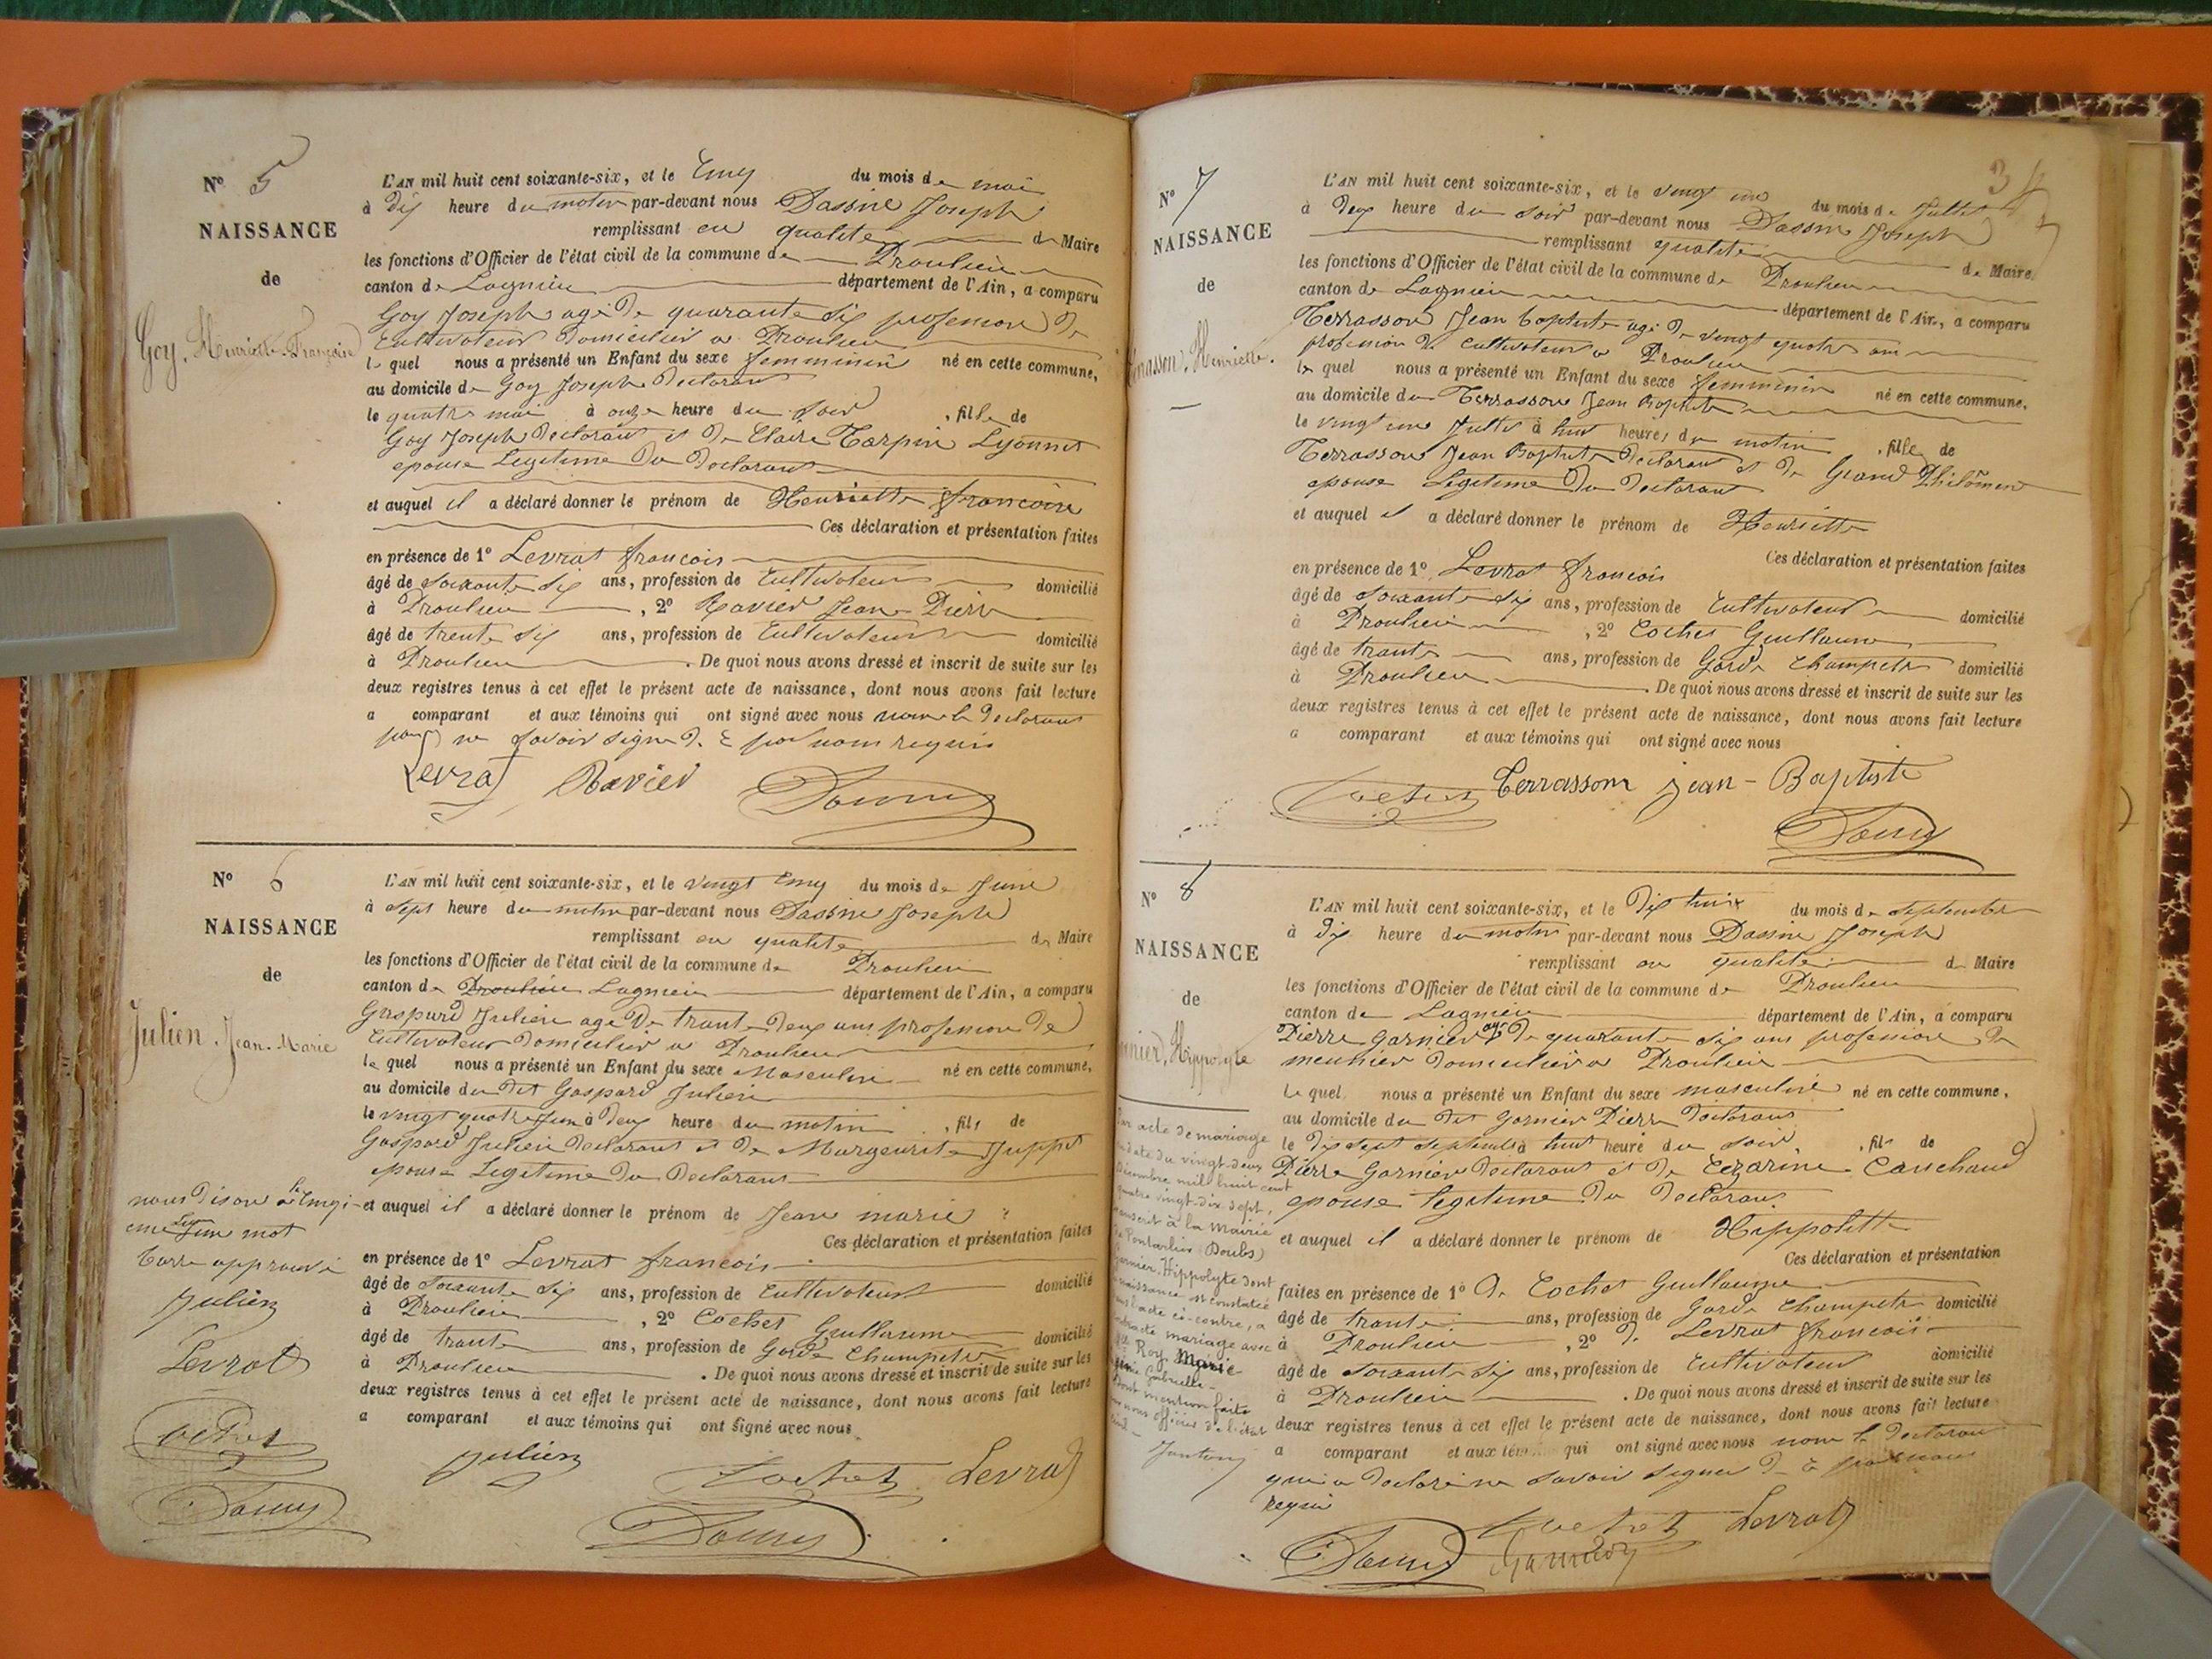 N° 5
NAISSANCE
de
Goy. Henriette-Françoise
L'AN mil huit cent soixante-six, et le Cinq du mois de mai
à dix heure du matin par-devant nous Dassin Joseph
remplissant en qualité de Maire
les fonctions d'Officier de l'état civil de la commune de Proulieu
canton de Lagnieu département de l'Ain, a comparu
Goy Joseph agé de quarante six profession de
Cultivateur domicilié a Proulieu
le quel nous a présenté un Enfant du sexe femminin né en cette commune,
au domicile de Goy Joseph declarant
le quatre mai à onze heure du soir , fille de
Goy Joseph declarant et de Claire Tarpin Lyonnet
epouse Legitime du declarant
et auquel il a déclaré donner le prénom de Henriette francoise
Ces déclaration et présentation faites
en présence de 1° Levrat francois
âgé de soixante six ans, profession de Cultivateur domicilié
à Proulieu , 2° Ravier Jean Pierre
âgé de trente six ans, profession de Cultivateur domicilié
à Proulieu . De quoi nous avons dressé et inscrit de suite sur les
deux registres tenus à cet effet le présent acte de naissance, dont nous avons fait lecture
a comparant et aux témoins qui ont signé avec nous non le declarant
pour ne savoir signe d. e par nous requis
Levrat Ravier
N° 6
NAISSANCE
de
Julien. Jean-Marie
L'AN mil huit cent soixante-six, et le vingt Cinq du mois de Juin
à sept heure du matin par-devant nous Dassin Joseph
remplissant en qualité de Maire
les fonctions d'Officier de l'état civil de la commune de Proulieu
canton de Proulieu Lagnieu département de l'Ain, a comparu
Gaspard Julien agé de trante deux ans profession de
Cultivateur domicilier a Proulieu
le quel nous a présenté un Enfant du sexe Masculin né en cette commune,
au domicile du dit Gaspard Julien
le vingt quatre Juin à deux heure du matin , fils de
Gaspard Julien declarant et de Margeurite Juppet
epouse Legitime du Declarant
et auquel il a déclaré donner le prénom de Jean marie
Ces déclaration et présentation faites
en présence de 1° Levrat francois
âgé de soixante six ans, profession de Cultivateur domicilié
à Proulieu , 2° Cochet Guillaume
âgé de trante ans, profession de Garde Champetre domicilié
à Proulieu . De quoi nous avons dressé et inscrit de suite sur les
deux registres tenus à cet effet le présent acte de naissance, dont nous avons fait lecture
a comparant et aux témoins qui ont signé avec nous
nous disons a la Cinqi-
eme Ligne un mot
barre approuvé
Julien
Levrat
Cochet
Julien Cochet Levrat
34
N° 7
NAISSANCE
de
Henriette.
L'AN mil huit cent soixante-six, et le vingt un du mois de Juillet
à deux heure du soir par-devant nous Dassin Joseph
remplissant qualité de Maire
les fonctions d'Officier de l'état civil de la commune de Proulieu
canton de Lagnieu département de l'Ain, a comparu
Terrasson Jean baptiste agé de vingt quatre ans
profession de Cultivateur a Proulieu
le quel nous a présenté un Enfant du sexe femminin né en cette commune,
au domicile du Terrasson Jean Baptiste
le vingt un Juillet à huit heures du matin , fille de
Terrasson Jean Baptiste declarant et de Grand Philomen
epouse Legitime du declarant
et auquel il a déclaré donner le prénom de Henriette
Ces déclaration et présentation faites
en présence de 1° Levrat francois
âgé de soixante six ans, profession de Cultivateur domicilié
à Proulieu , 2° Cochet Guillaume
âgé de trante ans, profession de Garde Champetre domicilié
à Proulieu . De quoi nous avons dressé et inscrit de suite sur les
deux registres tenus à cet effet le présent acte de naissance, dont nous avons fait lecture
a comparant et aux témoins qui ont signé avec nous
Cochet Terrasson jean-Baptiste
N° 8
NAISSANCE
de
Hippolyte
L'AN mil huit cent soixante-six, et le dix huit du mois de septembre
à dix heure du matin par-devant nous Dassin Joseph
remplissant en qualité de Maire
les fonctions d'Officier de l'état civil de la commune de Proulieu
canton de Lagnieu département de l'Ain, a comparu
Pierre Garnier agé de quarante six ans profession de
meunier domicilier a Proulieu
le quel nous a présenté un Enfant du sexe masculin né en cette commune,
au domicile du dit Garnier Pierre declarant
le dix sept septembre à huit heure du soir , fils de
Pierre Garnier declarant et de Cezarine Cauchaud
epouse legitime du declarant
et auquel il a déclaré donner le prénom de Hippolitte
Ces déclaration et présentation
faites en présence de 1° De Cochet Guillaume
âgé de trante ans, profession de Garde Champetre domicilié
à Proulieu , 2° de Levrat francois
âgé de soixante six ans, profession de Cultivateur domicilié
à Proulieu . De quoi nous avons dressé et inscrit de suite sur les
deux registres tenus à cet effet le présent acte de naissance, dont nous avons fait lecture
a comparant et aux tém qui ont signé avec nous non le declarant
qui a declaré ne savoir signer d. e par nous
requis
Par acte de mariage
en date du vingt-deux
Décembre mil huit cent
quatre vingt-dix sept,
transcrit à la Mairie
de Pontarlier (Doubs)
Garnier Hippolyte dont
la naissance est constatée
dans l'acte ci-contre, a
contracté mariage avec
Roy Marie
Gabrielle
Dont mention faite
par nous officier de l'état
civil
Cochet Levrat
Garnier